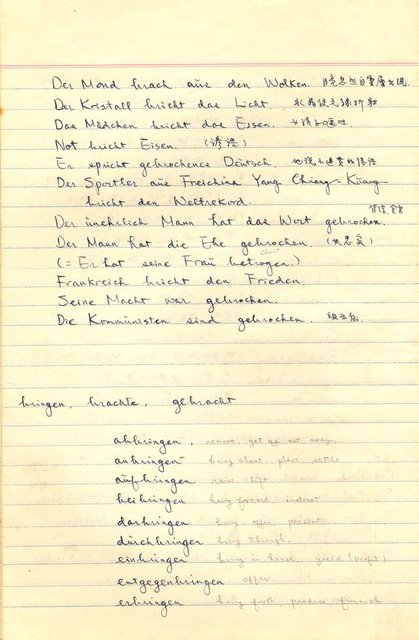 Der Mond brach aus den Wolken.
Der Kristall bricht das Licht.
Das Mädchen bricht das Essen. 女孩子嘔吐
Not bricht Eisen. (諺語)
Er spricht gebrochence Deutsch.
Der Sportler aus Freichina Yang Chuang-Kuang
bricht den Weltrekord.
Der unehrlich Mann hat das Wort gebrochen.
Der Mann hat die Ehe gebrochen.
(= Er hat seine Frau betrogen.) cheat
Frankreich bricht den Frieden.
Seine Macht war gebrochen.
Die Kommunisten sind gebrochen.
bringen, brachte, gebracht
abbringen, remove, get off, away
anbringen bring about, place, settle
aufbringen raise, lift
beibringen bring forward, instruct
darbringen bring, offer, present
durchbringen bring through
einbringen bring in house, yield (profit)
entgegenbringen offer
erbringen bring forth, produce, furnish